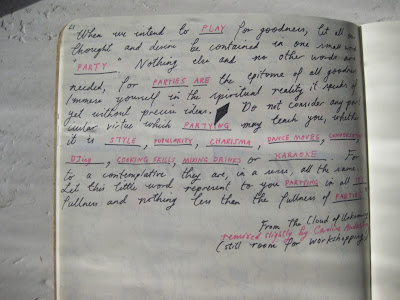 "When we intend to PLAY for goodness, let all our
thought and desire be contained in one small word
"PARTY." Nothing else and no other words are
needed, for PARTIES ARE the epitome of all goodness.
Immerse yourself in the spiritual reality it speaks of
yet without precise ideas. Do not consider any
virtue which PARTYING may teach you, whether
it is STYLE, POPULARITY, CHARISMA, DANCE MOVES,
DJing, COOKING SKILLS, MIXING DRINKS or KARAOKE. For
to a contemplative they are, in a sense, all the same.
Let this little word represent to you PARTYING in all
fullness and nothing less than the fullness of PARTIES."
From The Cloud of Unknowing
remixed slightly by
(still room for workshopping)